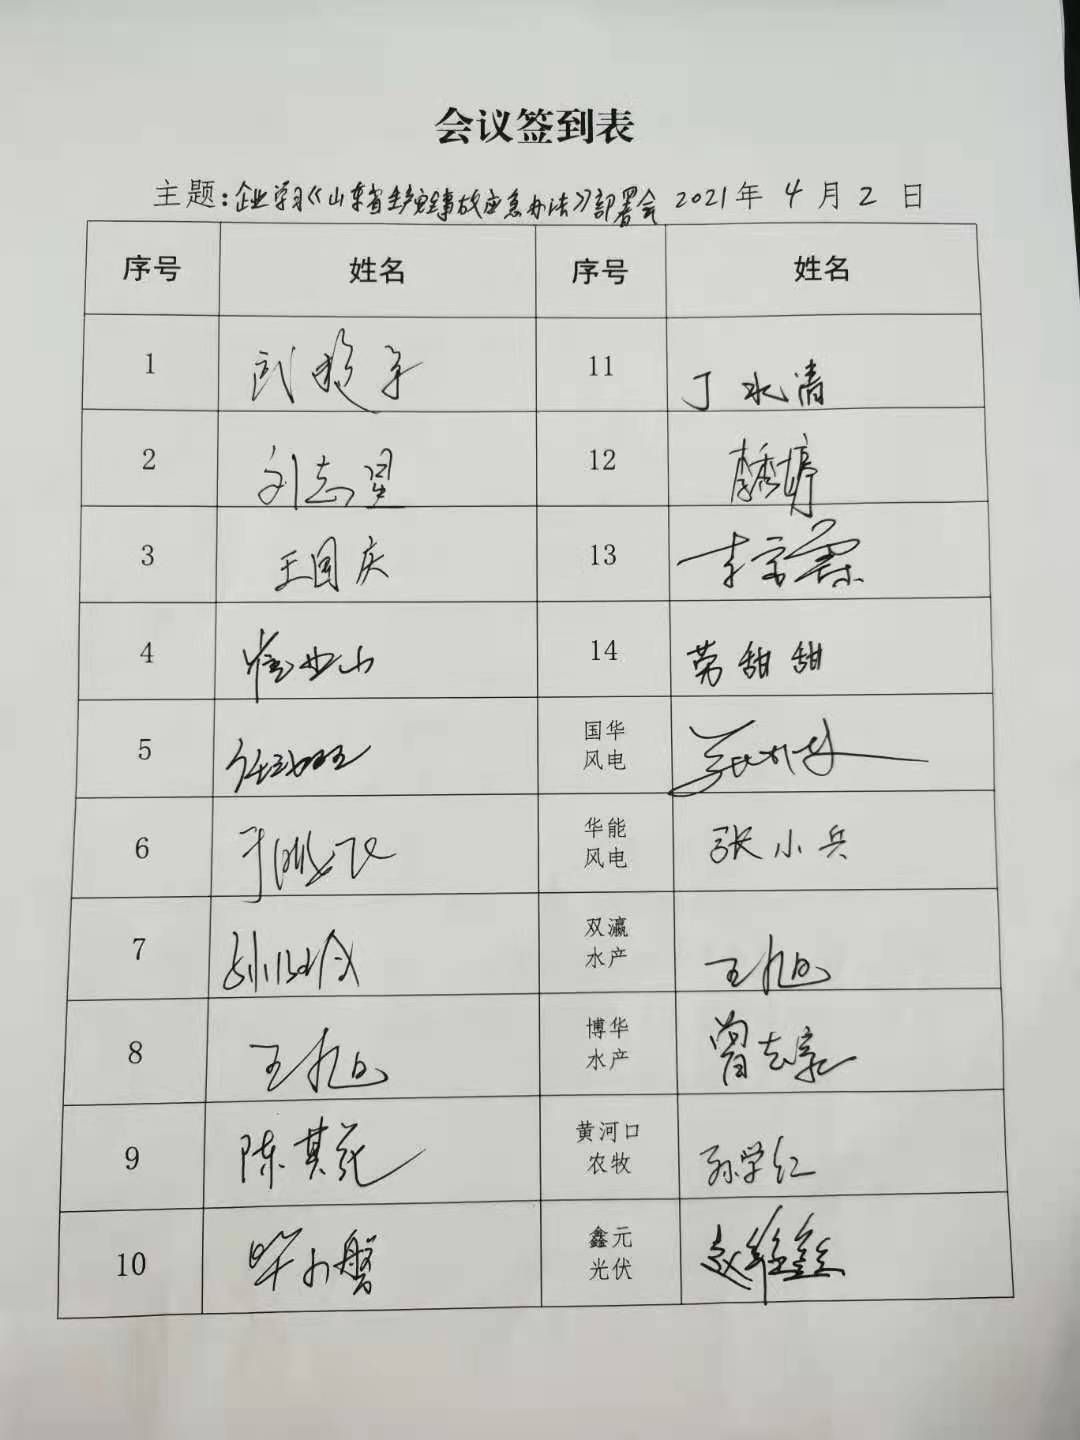 会议签到表
主题：企业学习《山东省生产安全事故应急办法》部署会 2021年 4 月 2 日
序号 姓名 序号 姓名
1 11 丁水清
2 刘志星 12 李秀婷
3 王国庆 13 李宗霖
4 崔业山 14 劳甜甜
5 国华
风电
6 华能
风电 张小兵
7 双瀛
水产 王旭
8 王旭 博华
水产 曾志豪
9 陈其苑 黄河口
农牧 孙学红
10 毕小磐 鑫元
光伏 赵维鑫